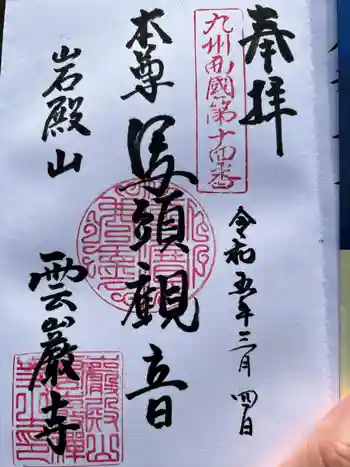 奉拝
九州西國第十四番
令和五年三月四日
本尊 馬頭觀音
岩殿山
雲巌寺